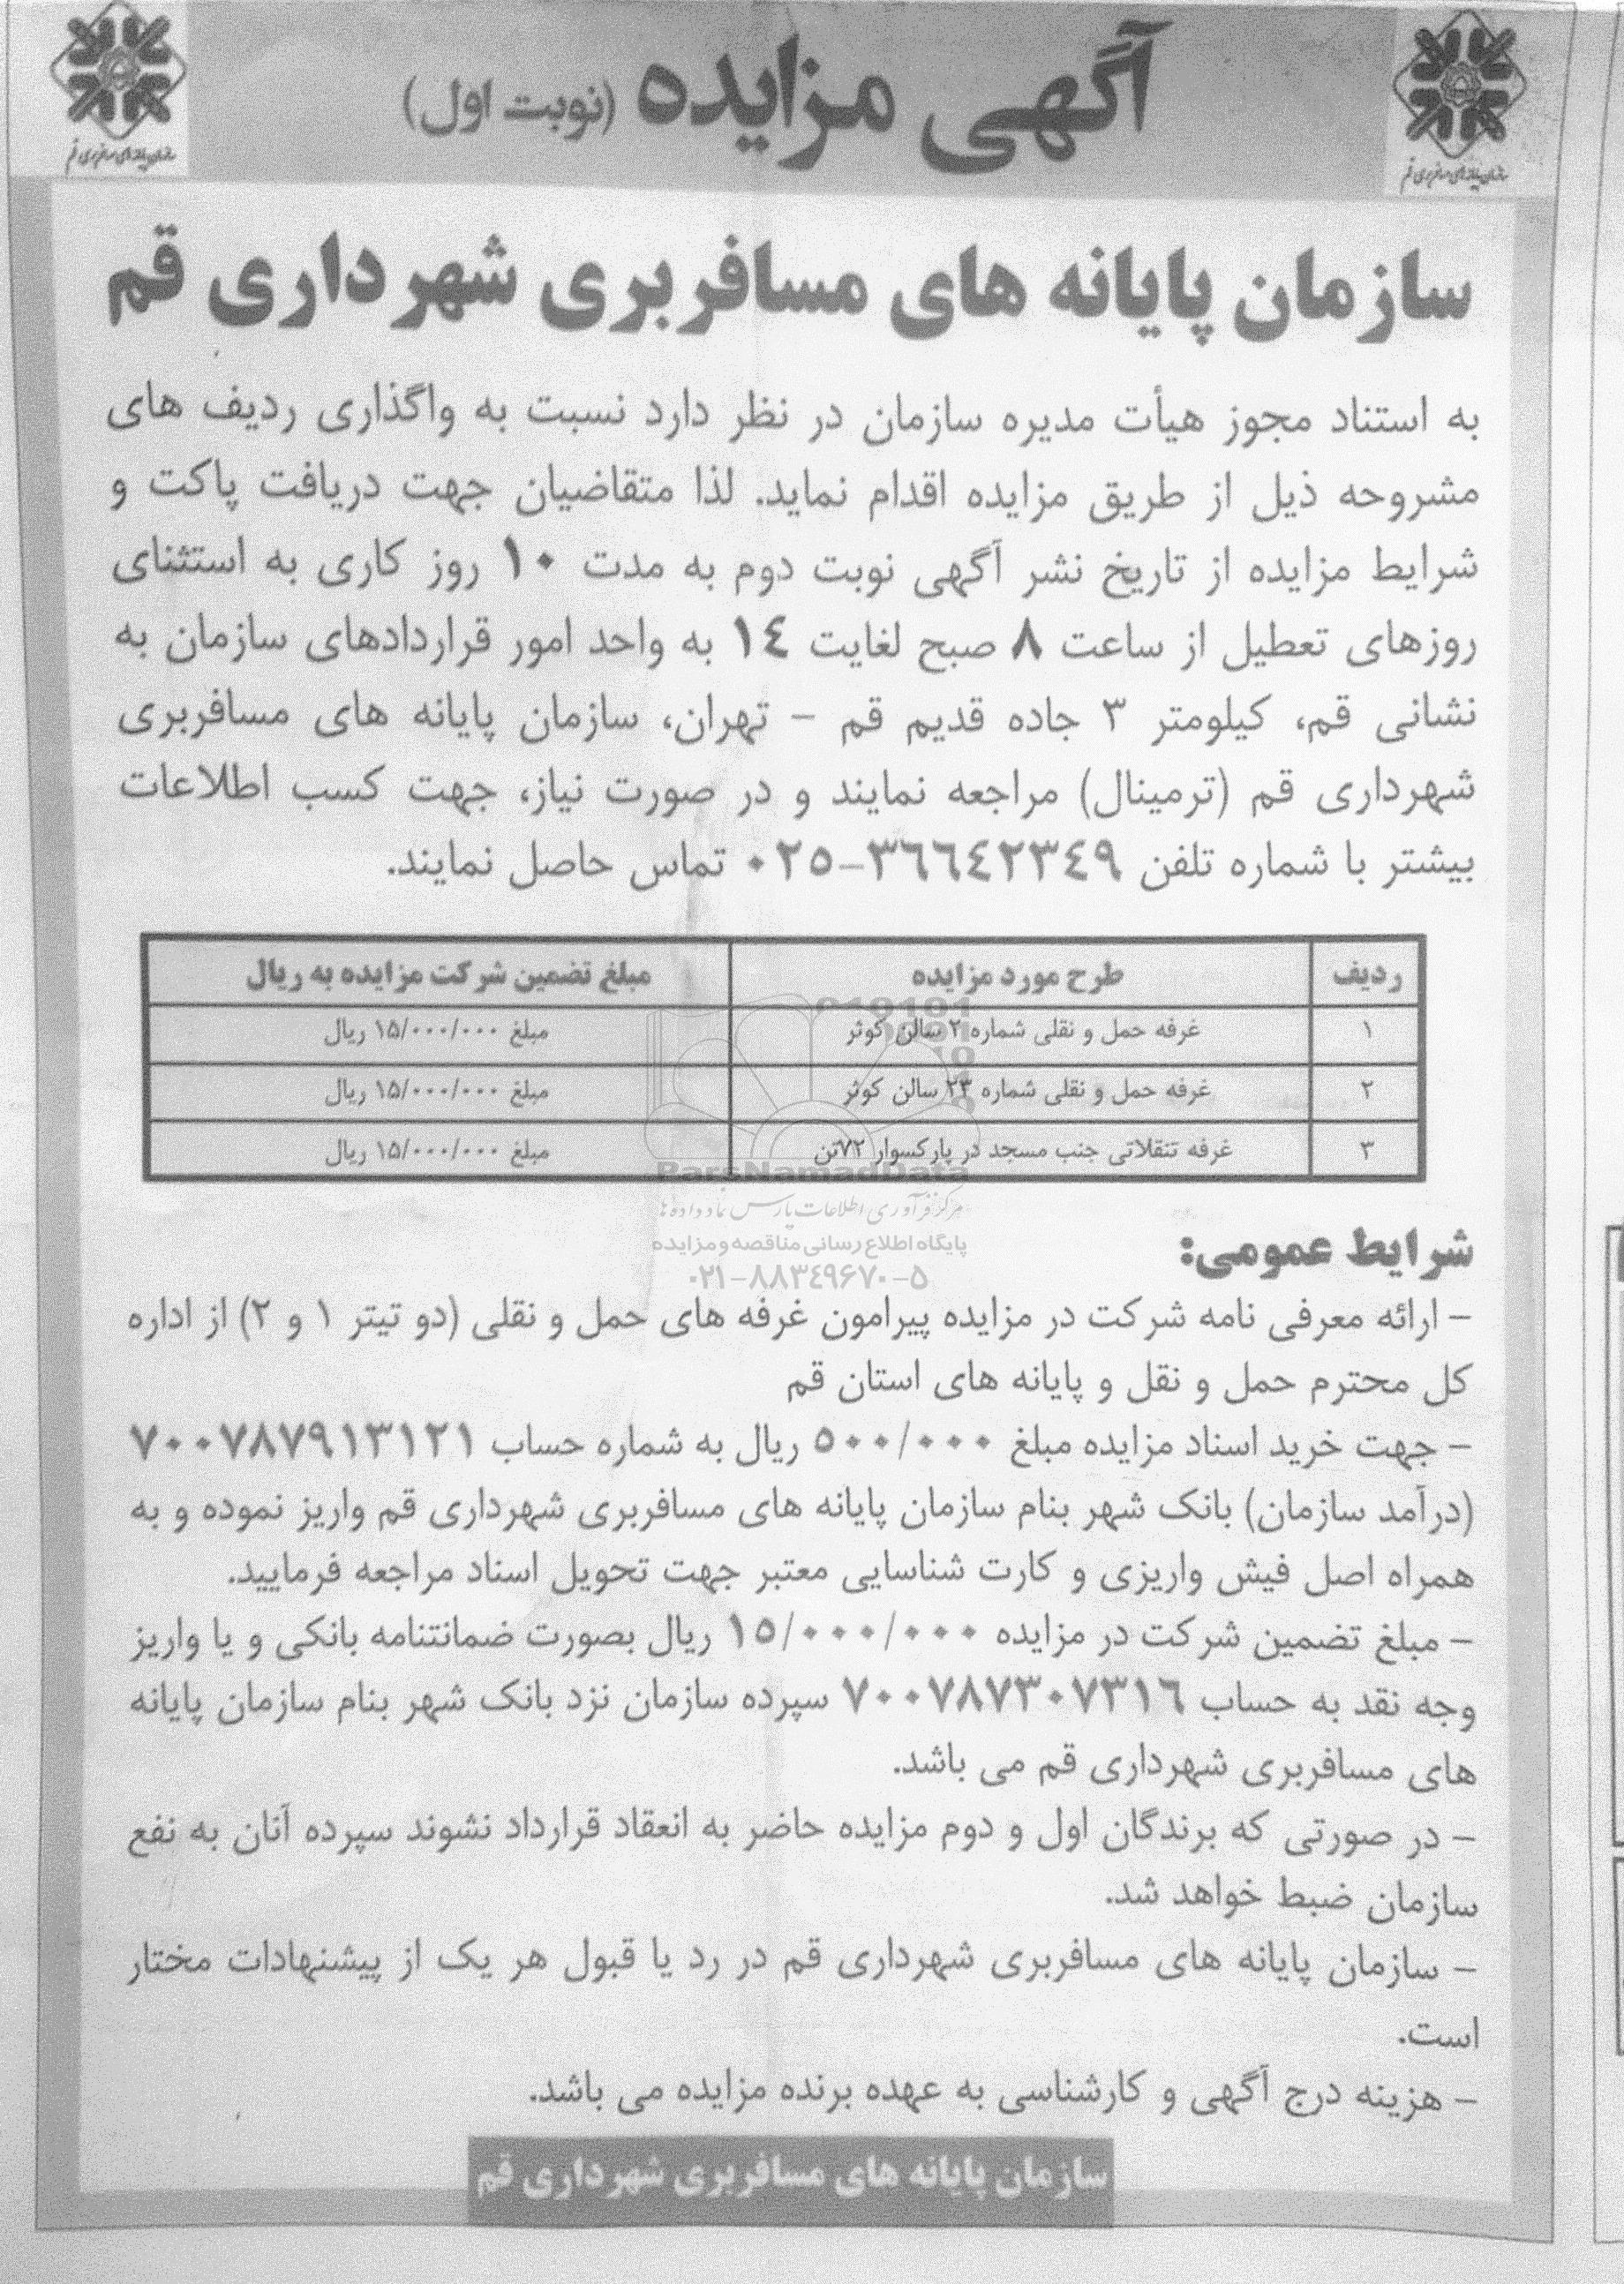 آگهی مزایده (نوبت اول)
سازمان پایانه های مسافربری قم
سازمان پایانه های مسافربری قم
سازمان پایانه های مسافربری شهرداری قم
به استناد مجوز هیأت مدیره سازمان در نظر دارد نسبت به واگذاری ردیف های
مشروحه ذیل از طریق مزایده اقدام نماید. لذا متقاضیان جهت دریافت پاکت و
شرایط مزایده از تاریخ نشر آگهی نوبت دوم به مدت ۱۰ روز کاری به استثنای
روزهای تعطیل از ساعت ۸ صبح لغایت ١٤ به واحد امور قراردادهای سازمان به
نشانی قم، کیلومتر ۳ جاده قدیم قم – تهران، سازمان پایانه های مسافربری
شهرداری قم (ترمینال) مراجعه نمایند و در صورت نیاز، جهت کسب اطلاعات
بیشتر با شماره تلفن ٣٦٦٤٢٣٤٩-٠٢٥ تماس حاصل نمایند.
ردیف	طرح مورد مزایده	مبلغ تضمین شرکت مزایده به ریال
۱	غرفه حمل و نقلی شماره ۲ سالن کوثر	مبلغ ۱۵/۰۰۰/۰۰۰ ریال
۲	غرفه حمل و نقلی شماره ۲۳ سالن کوثر	مبلغ ۱۵/۰۰۰/۰۰۰ ریال
۳	غرفه تنقلاتی جنب مسجد در پارکسوار ۷۲تن	مبلغ ۱۵/۰۰۰/۰۰۰ ریال
ParsNamadData
مرکز فرآوری اطلاعات پارس نماد داده ها
پایگاه اطلاع رسانی مناقصه و مزایده
۰۲۱-۸۸۳۴۹۶۷۰-۵
شرایط عمومی:
– ارائه معرفی نامه شرکت در مزایده پیرامون غرفه های حمل و نقلی (دو تیتر ۱ و ۲) از اداره
کل محترم حمل و نقل و پایانه های استان قم
– جهت خرید اسناد مزایده مبلغ ۵۰۰/۰۰۰ ریال به شماره حساب ۷۰۰۷۸۷۹۱۳۱۲۱
(درآمد سازمان) بانک شهر بنام سازمان پایانه های مسافربری شهرداری قم واریز نموده و به
همراه اصل فیش واریزی و کارت شناسایی معتبر جهت تحویل اسناد مراجعه فرمایید.
– مبلغ تضمین شرکت در مزایده ۱۵/۰۰۰/۰۰۰ ریال بصورت ضمانتنامه بانکی و یا واریز
وجه نقد به حساب ٧٠٠٧٨٧٣٠٧٣١٦ سپرده سازمان نزد بانک شهر بنام سازمان پایانه
های مسافربری شهرداری قم می باشد.
– در صورتی که برندگان اول و دوم مزایده حاضر به انعقاد قرارداد نشوند سپرده آنان به نفع
سازمان ضبط خواهد شد.
– سازمان پایانه های مسافربری شهرداری قم در رد یا قبول هر یک از پیشنهادات مختار
است.
– هزینه درج آگهی و کارشناسی به عهده برنده مزایده می باشد.
سازمان پایانه های مسافربری شهرداری قم